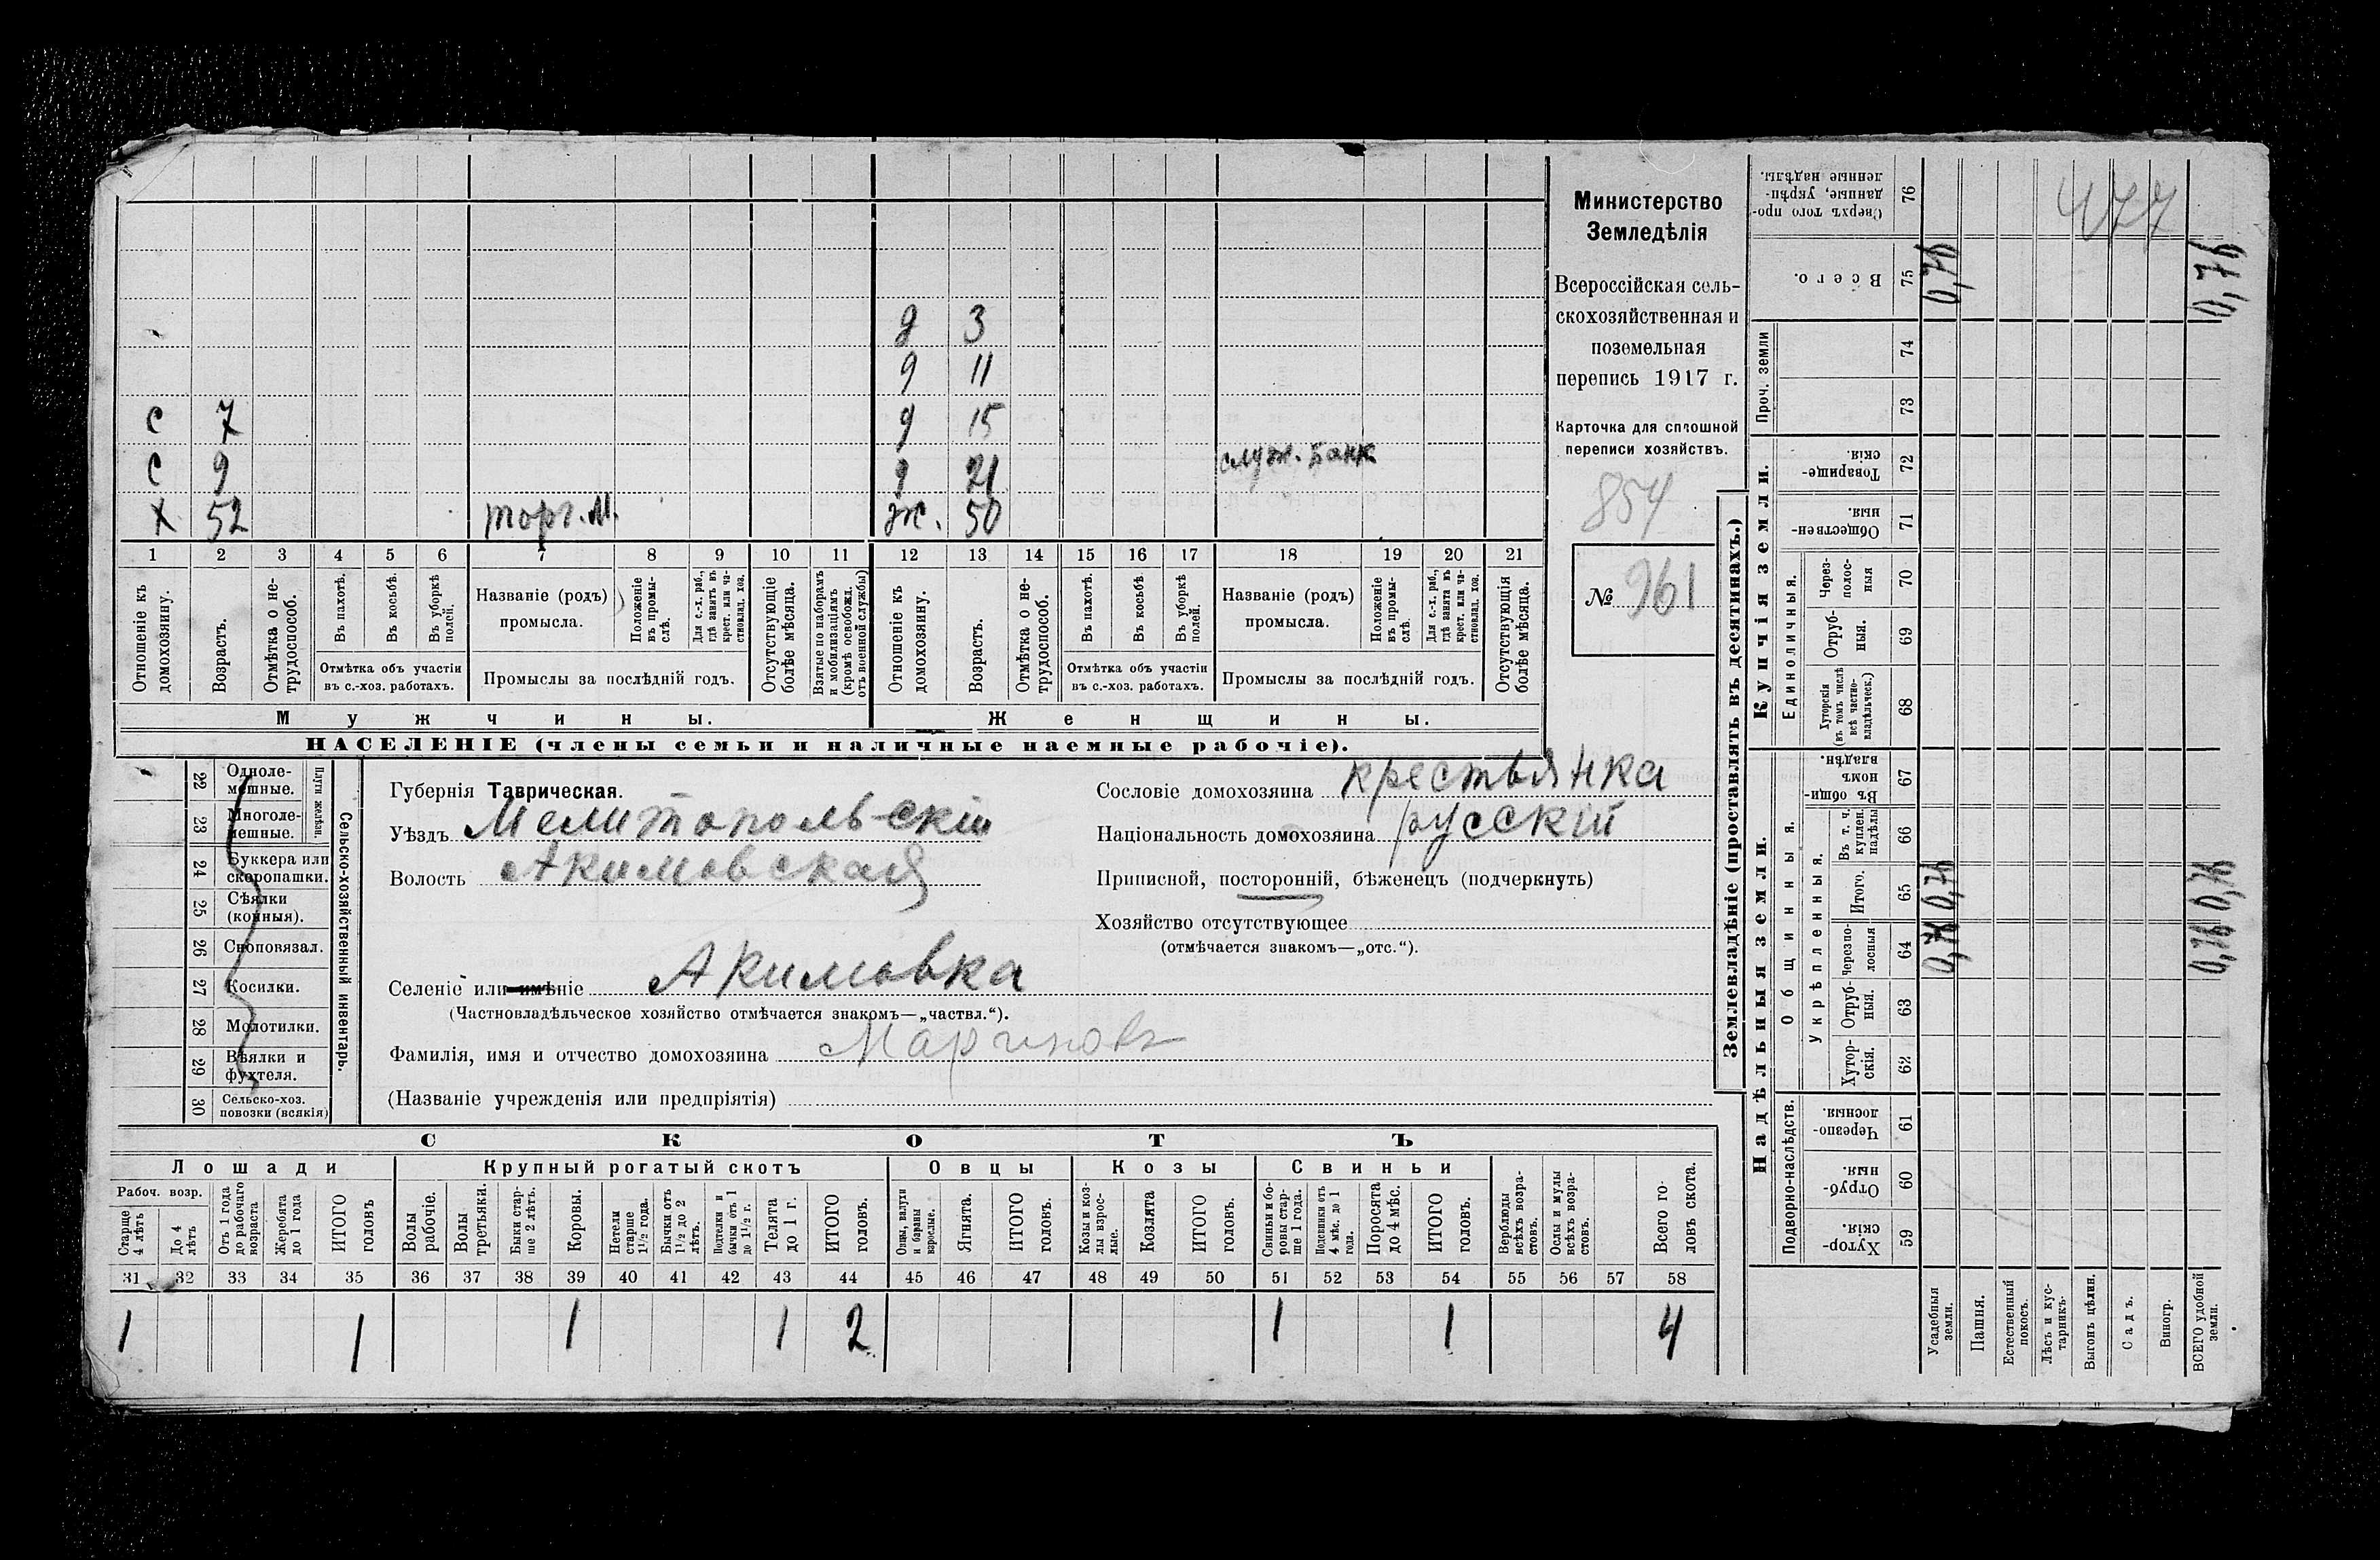 Министерство
Земледѣлія
Всероссійская сель-
скохозяйственная и
поземельная
перепись 1917 г.
Карточка для сплошной
переписи хозяйствъ.
854
№ 961
д 3
д 11
с 7 д 15
с 9 д 21 служ. Банк
х 52 торг. М. ж. 50
1 2 3 4 5 6 7 8 9 10 11 12 13 14 15 16 17 18 19 20 21
Отношеніе къ домохозяину.
Возрастъ.
Отмѣтка о не-трудоспособ.
Въ пахотѣ.
Въ косьбѣ.
Въ уборкѣ полей.
Отмѣтка объ участіи
въ с.-хоз. работахъ.
Названіе (родъ)
промысла.
Положеніе въ промы-слѣ.
Для с.-х. раб., гдѣ занятъ въ крест. или ча-стновлад. хоз.
Промыслы за послѣдній годъ.
Отсутствующіе болѣе мѣсяца.
Взятые по наборамъ и мобилизаціямъ (кромѣ освобожд. отъ военной службы)
Отношеніе къ домохозяину.
Возрастъ.
Отмѣтка о не-трудоспособ.
Въ пахотѣ.
Въ косьбѣ.
Въ уборкѣ полей.
Отмѣтка объ участіи
въ с.-хоз. работахъ.
Названіе (родъ)
промысла.
Положеніе въ промы-слѣ.
Для с.-х. раб., гдѣ занята въ крест. или ча-стновлад. хоз.
Промыслы за послѣдній годъ.
Отсутствующія болѣе мѣсяца.
Мужчины. Женщины.
НАСЕЛЕНІЕ (члены семьи и наличные наемные рабочіе).
Сельско-хозяйственный инвентарь.
Плуги желѣзн.
22 Одноле-мешные.
23 Многоле-мешные.
24 Буккера или скоропашки.
25 Сѣялки (конныя).
26 Сноповязал.
27 Косилки.
28 Молотилки.
29 Вѣялки и фухтеля.
30 Сельско-хоз. повозки (всякія)
Губернія Таврическая.
Уѣздъ Мелитопольскій
Волость Акимовская
Селеніе или имѣніе Акимовка
(Частновладѣльческое хозяйство отмѣчается знакомъ—„частвл.“).
Фамилія, имя и отчество домохозяина
(Названіе учрежденія или предпріятія)
Сословіе домохозяина крестьянка
Національность домохозяина русскій
Приписной, посторонній, бѣженецъ (подчеркнуть)
Хозяйство отсутствующее
(отмѣчается знакомъ—„отс.“).
СКОТЪ
Лошади Крупный рогатый скотъ Овцы Козы Свиньи
Рабоч. возр.
Старше 4 лѣтъ
До 4 лѣтъ
Отъ 1 года до рабочаго возраста
Жеребята до 1 года
ИТОГО головъ
Волы рабочіе.
Волы третьяки.
Быки стар-ше 2 лѣтъ.
Коровы.
Нетели старше 1 1/2 года.
Бычки отъ 1 1/2 до 2 лѣтъ.
Подтелки и бычки отъ 1 до 1 1/2 г.
Телята до 1 г.
ИТОГО головъ.
Овцы, валухи и бараны взрослые.
Ягнята.
ИТОГО головъ.
Козы и коз-лы взрос-лые.
Козлята
ИТОГО головъ.
Свиньи и бо-ровы стар-ше 1 года.
Подсвинки отъ 4 мѣс. до 1 года.
Поросята до 4 мѣс.
ИТОГО головъ.
Верблюды всѣхъ возра-стовъ.
Ослы и мулы всѣхъ возра-стовъ.
Всего го-ловъ скота.
31 32 33 34 35 36 37 38 39 40 41 42 43 44 45 46 47 48 49 50 51 52 53 54 55 56 57 58
1 1 1 1 2 1 1 4
Землевладѣніе (проставлять въ десятинахъ.)
477
Сверхъ того про-данные, укрѣп-ленные надѣлы. 76
Всего. 75 0,76 0,76
Купчія земли.
Проч. земли 74
73
Товарище-скія. 72
Обществен-ныя. 71
Единоличныя.
Через-полос-ныя 70
Отруб-ныя. 69
Хуторскія (въ томъ числѣ всѣ частно-владѣльческ.) 68
Надѣльныя земли.
Общинныя.
Въ общи-номъ владѣн. 67
Укрѣпленныя.
Въ т. ч. куплен. надѣлы 66
Итого. 65 0,76 0,76
Черезпо-лосныя 64 0,76 0,76
Отруб-ныя. 63
Хутор-скія. 62
Подворно-наслѣдств.
Черезпо-лосныя. 61
Отруб-ныя. 60
Хутор-скія. 59
Усадебныя земли.
Пашня.
Естественный покосъ.
Лѣсъ и кус-тарникъ.
Выгонъ цѣлин.
Садъ.
Виногр.
ВСЕГО удобной земли.